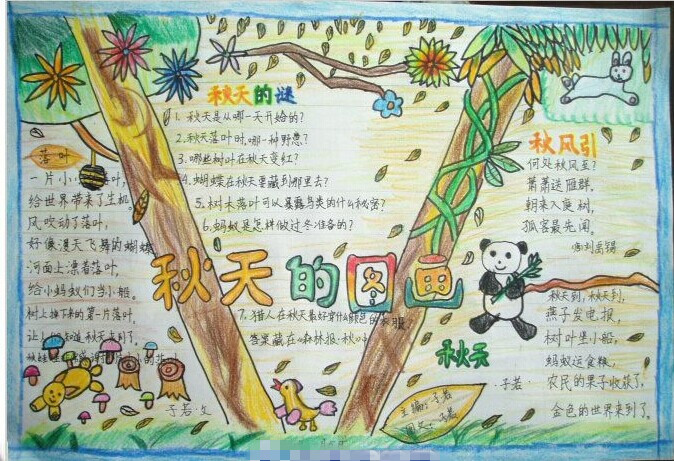 秋天的谜
1. 秋天是从哪一天开始的?
2. 秋天落叶时,哪一种野
3. 哪些树叶在秋天变红?
4. 蝴蝶在秋天要藏到那里去?
5. 树木落叶可以暴露鸟类的什么秘密?
6. 蚂蚁是怎样做过冬准备的?
7. 猎人在秋天最好穿什么颜色的衣服
答案藏在《森林报·秋
落叶
一片小 落叶,
给世界带来了生机
风吹动了落叶,
好像漫天飞舞的蝴蝶
河面上漂着落叶,
给小蚂蚁们当小船。
树上掉下来的第一片落叶,
让 知道秋天来到了,
于若·文
秋天的图画
秋风引
何处秋风至?
萧萧送雁群。
朝来入庭树,
孤客最先闻。
刘禹锡
秋天
于若·
秋天到,秋天到,
燕子发电报,
树叶堡小船,
蚂蚁运食粮,
农民的果子收获了,
金色的世界来到了。
主编:于若